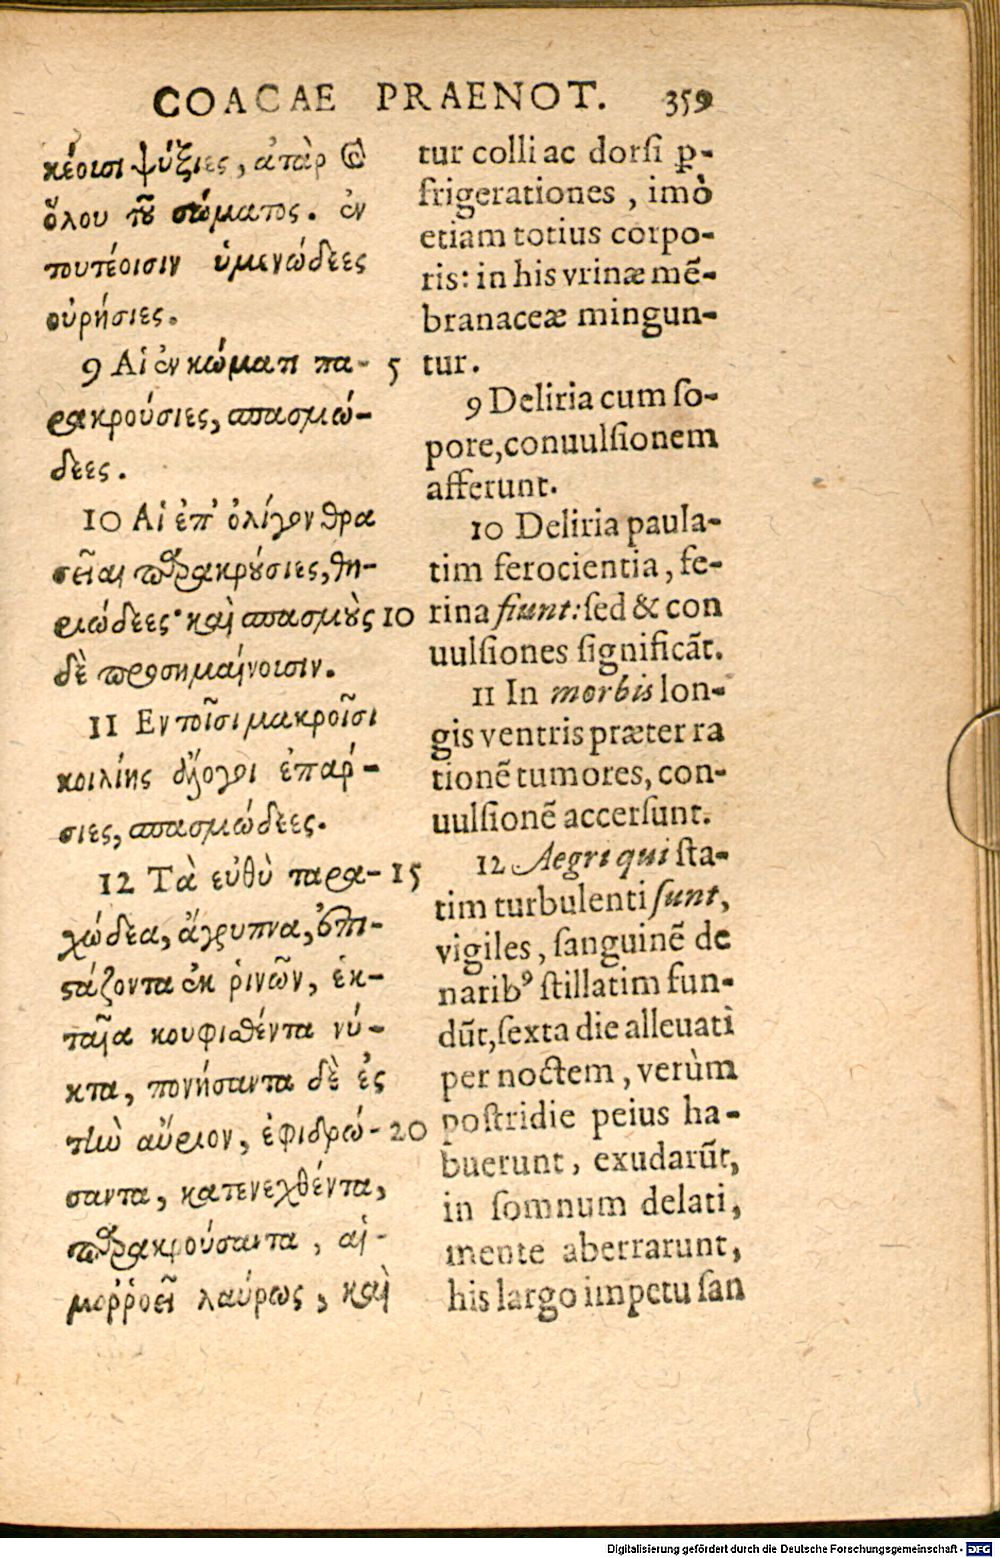 COACAE PRAENOT. 359
κέοισι ψύξιες, ἀτὰρ καὶ
ὅλου τοῦ σώματος. ἐν
τουτέοισιν ὑμενώδεες
οὐρήσιες.
9 Αἱ ἐν κώματι πα- 5
ρακρούσιες, σπασμώ-
δεες.
10 Αἱ ἐπ' ὀλίγον θρα
σεῖαι παρακρούσιες, θη-
ριώδεες· καὶ σπασμοὺς 10
δὲ προσημαίνοισιν.
11 Εν τοῖσι μακροῖσι
κοιλίης ἄλογοι ἐπάρ-
σιες, σπασμώδεες.
12 Τὰ εὐθὺ ταρα- 15
χώδεα, ἄγρυπνα, ἐπι-
στάζοντα ἐκ ῥινῶν, ἑκ-
ταῖα κουφισθέντα νύ-
κτα, πονήσαντα δὲ ἐς
τὴν αὔριον, ἐφιδρώ- 20
σαντα, κατενεχθέντα,
παρακρούσαντα, αἱ-
μοῤῥοεῖ λαύρως, καὶ
tur colli ac dorsi ꝑ-
frigerationes, imò
etiam totius corpo-
ris: in his vrinæ mẽ-
branaceæ mingun-
tur.
9 Deliria cum ſo-
pore, conuulſionem
afferunt.
10 Deliria paula-
tim ferocientia, fe-
rina fiunt: ſed & con
uulſiones ſignificãt.
11 In morbis lon-
gis ventris præter ra
tionẽ tumores, con-
uulſionẽ accerſunt.
12 Aegri qui ſta-
tim turbulenti ſunt,
vigiles, ſanguinẽ de
naribꝰ ſtillatim fun-
dũt, ſexta die alleuati
per noctem, verùm
poſtridie peius ha-
buerunt, exudarũt,
in ſomnum delati,
mente aberrarunt,
his largo impetu ſan
Digitalisierung gefördert durch die Deutsche Forschungsgemeinschaft - DFG